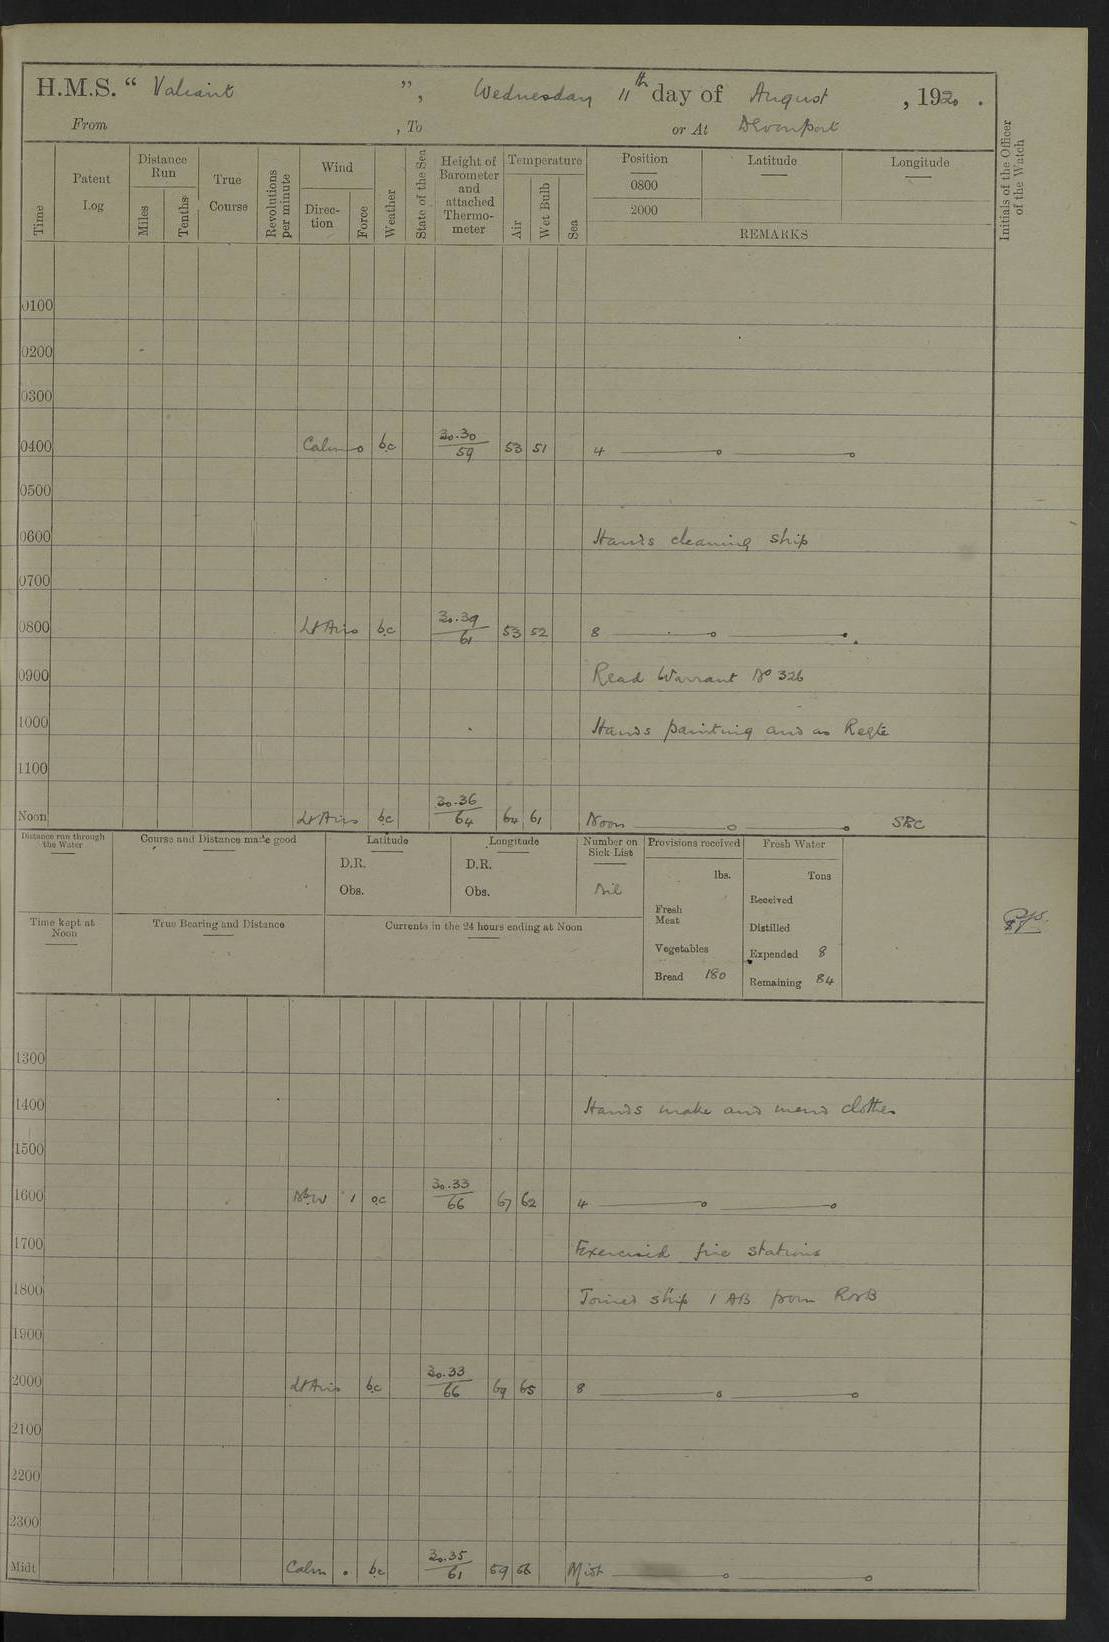 H.M.S. “ Valiant ”, Wednesday 11th day of August , 1920 .
From , To or At Devonport
Time
Patent Log
Distance Run
Miles
Tenths
True Course
Revolutions per minute
Wind
Direc-tion
Force
Weather
State of the Sea
Height of Barometer and attached Thermo-meter
Temperature
Air
Wet Bulb
Sea
Position
0800
2000
Latitude
Longitude
REMARKS
Initials of the Officer of the Watch
0100
0200
0300
0400 Calm o bc 30.30/59 53 51 4
0500
0600 Hands cleaning ship
0700
0800 Lt Airs bc 30.39/61 53 52 8
0900 Read Warrant No 326
1000 Hands painting and as Reqte
1100
Noon Lt Airs bc 30.36/64 64 61 Noon
Distance run through the Water
Course and Distance made good
Latitude
D.R.
Obs.
Longitude
D.R.
Obs.
Number on Sick List
Nil
Provisions received
lbs.
Fresh Meat
Vegetables
Bread 180
Fresh Water
Tons
Received
Distilled
Expended 8
Remaining 84
Time kept at Noon
True Bearing and Distance
Currents in the 24 hours ending at Noon
1300
1400 Hands make and mend clothes
1500
1600 1 oc 30.33/66 67 62 4
1700 Exercised fire stations
1800 Joined ship 1 AB from RNB
1900
2000 Lt Airs bc 30.33/66 69 65 8
2100
2200
2300
Midt Calm . bc 30.35/61 59 56 Midt